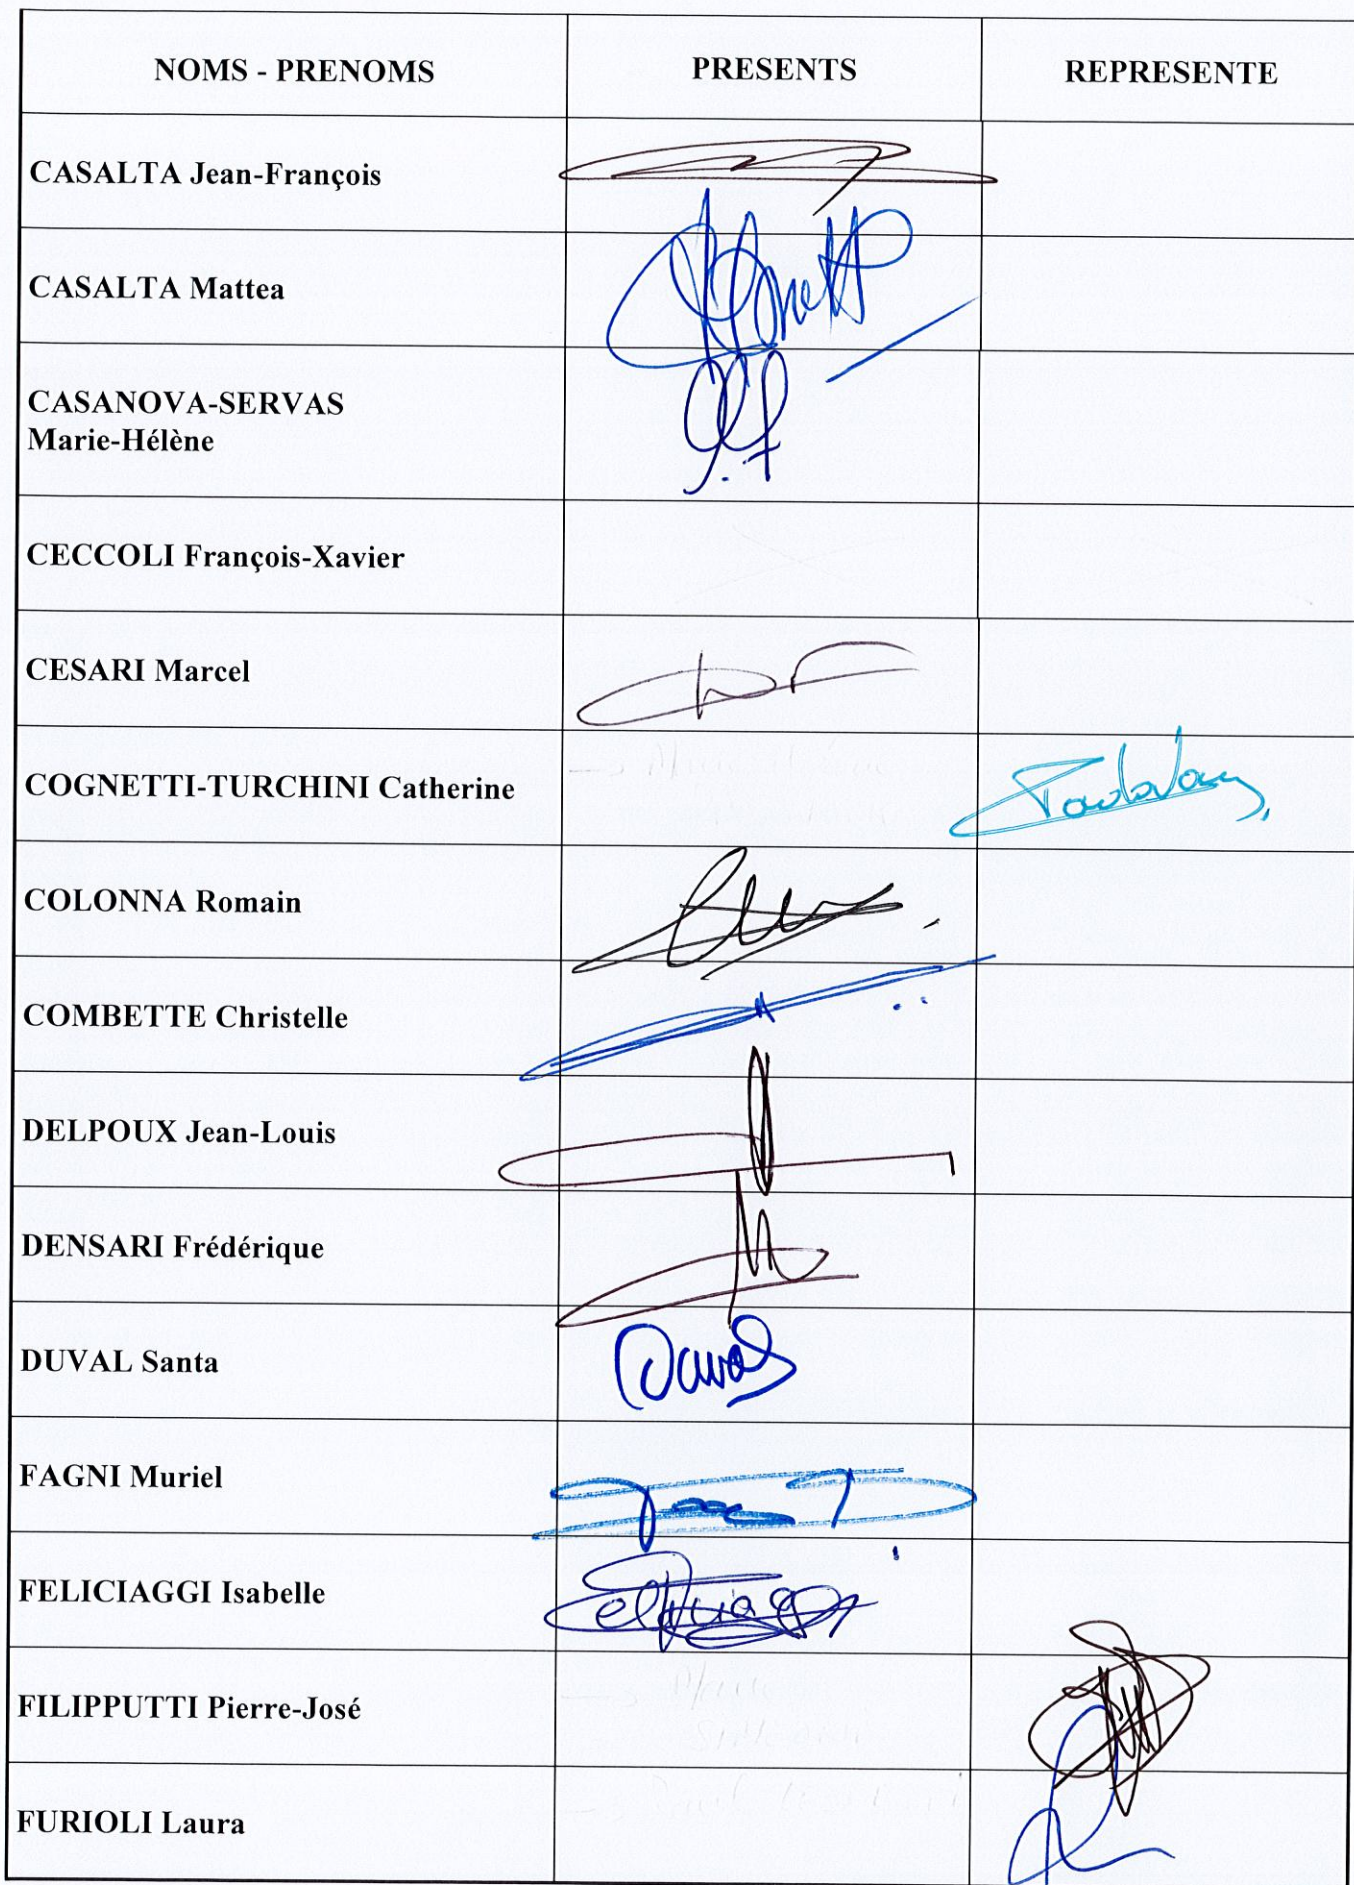 NOMS - PRENOMS PRESENTS REPRESENTE
CASALTA Jean-François
CASALTA Mattea
CASANOVA-SERVAS
Marie-Hélène
CECCOLI François-Xavier
CESARI Marcel
COGNETTI-TURCHINI Catherine
COLONNA Romain
COMBETTE Christelle
DELPOUX Jean-Louis
DENSARI Frédérique
DUVAL Santa Duval
FAGNI Muriel
FELICIAGGI Isabelle
FILIPPUTTI Pierre-José
FURIOLI Laura